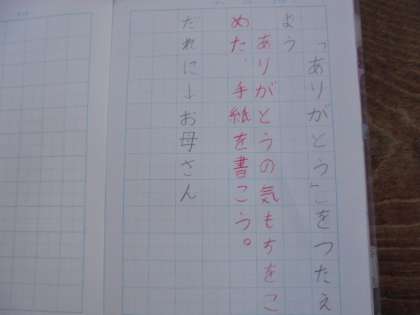 「ありがとう」をつたえ
よう
ありがとうの気もちをこ
めた、手紙を書こう。
だれに→お母さん